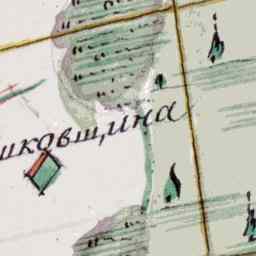 шковщина